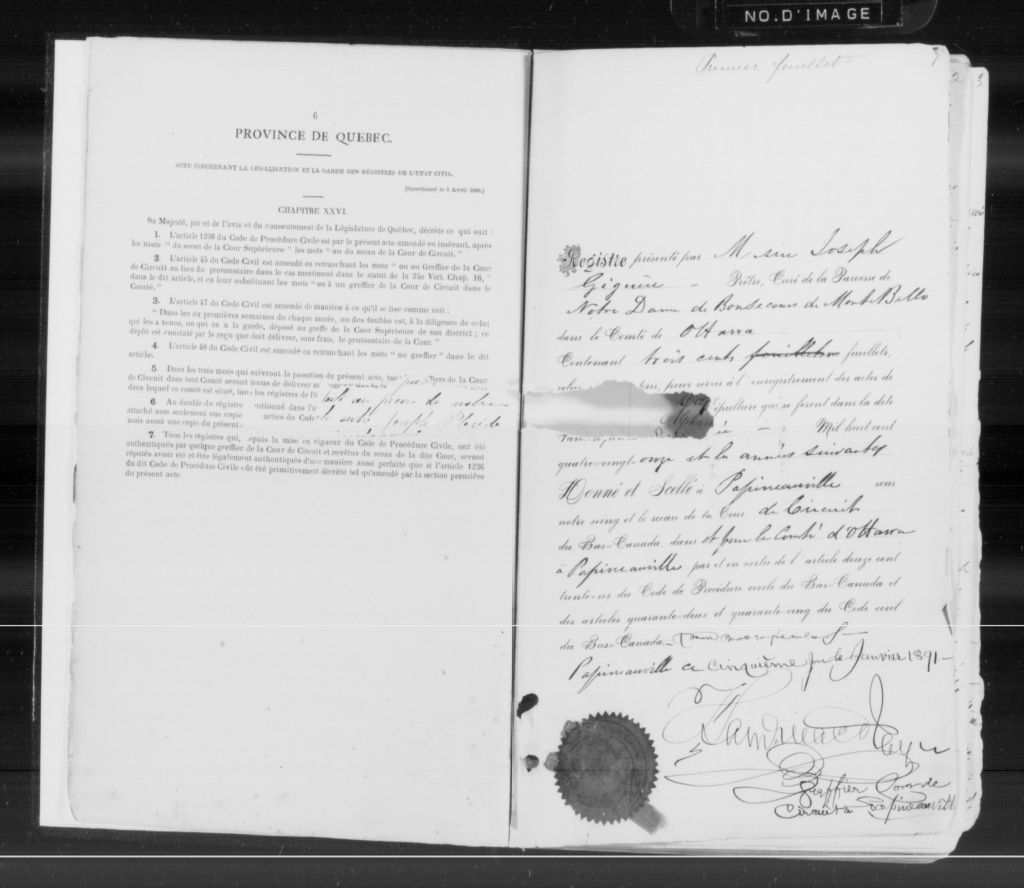 NO. D'IMAGE
6
PROVINCE DE QUEBEC.
ACTE CONCERNANT LA LEGALISATION ET LA GARDE DES REGISTRES DE L'ETAT CIVIL.
[Sanctionné le 5 Avril 1866.]
CHAPITRE XXVI.
Sa Majesté, par et de l'avis et du consentement de la Législature de Québec, décrète ce qui suit :
1. L'article 1236 du Code de Procédure Civile est par le présent acte amendé en insérant, après
les mots " du sceau de la Cour Supérieure " les mots " ou du sceau de la Cour de Circuit. "
2. L'article 45 du Code Civil est amendé en retranchant les mots " ou au Greffier de la Cour
de Circuit au lieu du protonotaire dans le cas mentionné dans le statut de la 25e Vict. Chap. 16, "
dans le dit article, et en leur substituant les mots " ou à un greffier de la Cour de Circuit dans le
Comté. "
3. L'article 47 du Code Civil est amendé de manière à ce qu'il se lise comme suit :
" Dans les six premières semaines de chaque année, un des doubles est, à la diligence de celui
qui les a tenus, ou qui en a la garde, déposé au greffe de la Cour Supérieure de son district ; ce
dépôt est constaté par le reçu que doit délivrer, sans frais, le protonotaire de la Cour. "
4. L'article 48 du Code Civil est amendé en retranchant les mots " ou greffier " dans le dit
article.
5. Dans les trois mois qui suivront la passation du présent acte, tous iers de la Cour
de Circuit dans tout Comté seront tenus de délivrer au
dans lequel ce comté est situé, tous les registres de l'é
6. Au double du registre entionné dans l'a
attaché non seulement une copie arties du Code
mais aussi une copie du présent
Joseph
7. Tous les régistres qui, epuis la mise en vigueur du Code de Procédure Civile, ont été
authentiqués par quelque greffier de la Cour de Circuit et revêtus du sceau de la dite Cour, seront
réputés avoir été et être légalement authentiqués d'une manière aussi parfaite que si l'article 1236
du dit Code de Procédure Civile eût été primitivement décrété tel qu'amendé par la section première
du présent acte.
Premier feuillet
2
3
Registre présenté par Messire Joseph
Giguère — Prêtre, Curé de la Paroisse de
Notre Dame de Bonsecours de Monte Bello
dans le Comté de Ottawa
Contenant trois cents feuillets,
pour servir à l'enregistrement des actes de
sépulture qui se feront dans la dite
Mil huit cent
quatre-vingt-onze et les années suivantes
Donné et Scellé à Papineauville sous
notre seing et le sceau de la Cour de Circuit
du Bas-Canada, dans et pour le Comté d'Ottawa
à Papineauville par et en vertu de l'article douze cent
trente-six du Code de Procédure civile du Bas-Canada et
des articles quarante-deux et quarante-cinq du Code civil
du Bas-Canada
Papineauville ce cinquième jour de Janvier 1891 —
Greffier Cour de
Circuit à Papineauville